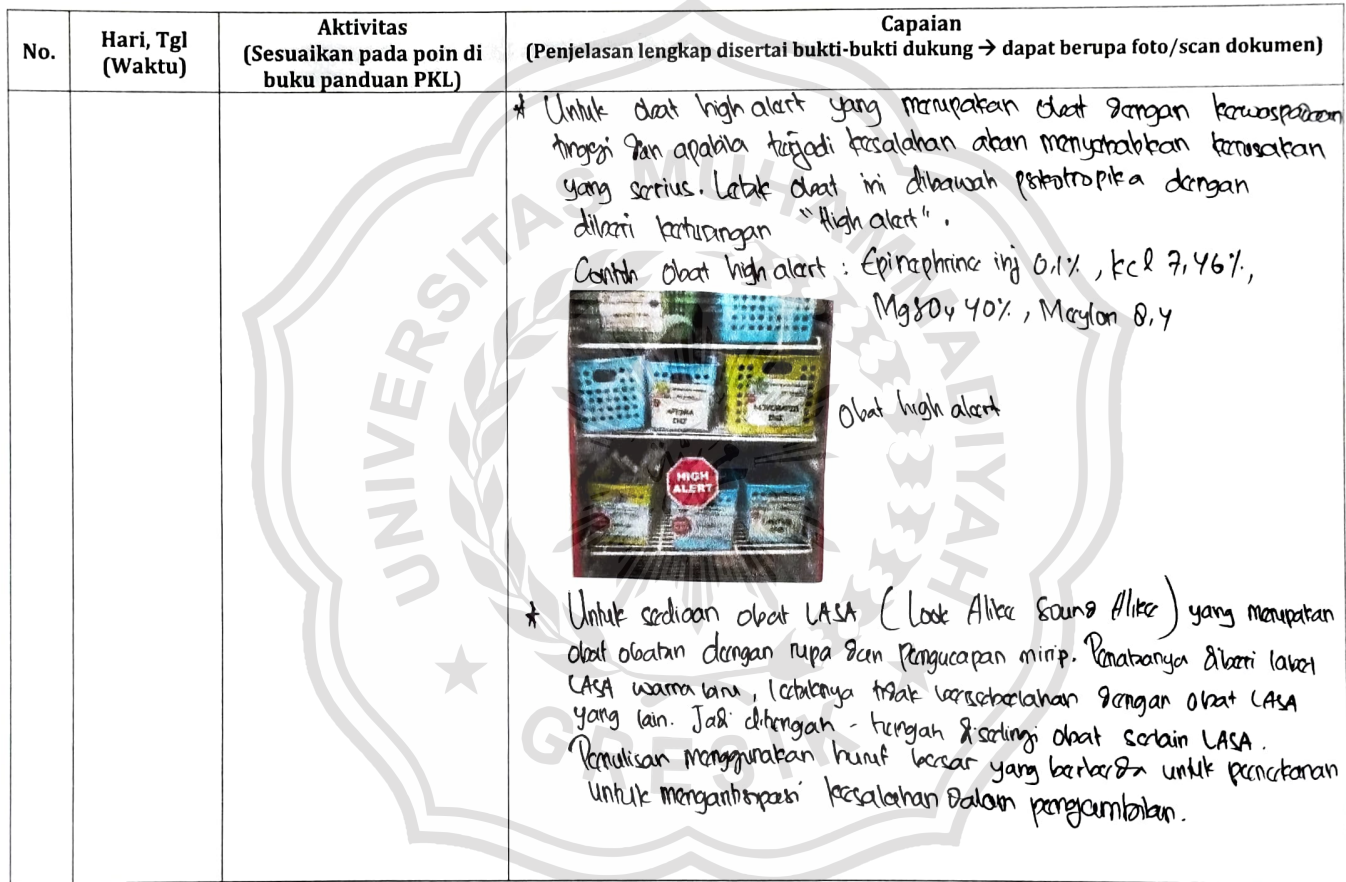 No.
Hari, Tgl
(Waktu)
Aktivitas
(Sesuaikan pada poin di
buku panduan PKL)
Capaian
(Penjelasan lengkap disertai bukti-bukti dukung → dapat berupa foto/scan dokumen)
* Untuk obat high alert yang merupakan obat dengan kewaspadaan
tinggi dan apabila terjadi kesalahan akan menyebabkan kerusakan
yang serius. Letak obat ini dibawah psikotropika dengan
diberi keterangan "High alert".
Contoh obat high alert : Epinephrine inj 0,1%, kcl 7,46%,
MgSO4 40%, Meylon 8,4
HIGH
ALERT
Obat high alert
* Untuk sediaan obat LASA (Look Alike Sound Alike) yang merupakan
obat obatan dengan rupa dan pengucapan mirip. Penataanya diberi label
LASA warna biru, letaknya tidak bersebelahan dengan obat LASA
yang lain. Jadi ditengah - tengah diselingi obat selain LASA.
Penulisan menggunakan huruf besar yang berbeda untuk penekanan
untuk mengantisipasi kesalahan dalam pengambilan.
UNIVERSITAS MUHAMMADIYAH
GRESIK